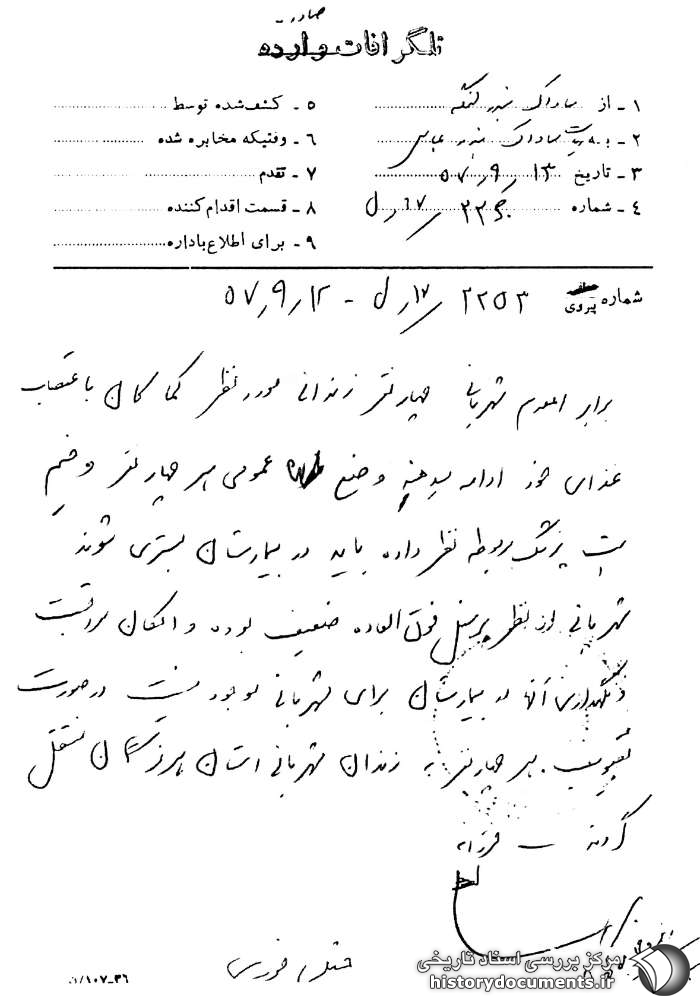 صادره
تلگرافات وارده
۱ - از ساواک بندر لنگه
۲ - به ریاست ساواک بندر عباس
۳ - تاریخ ۵۷٫۹٫۱۳
۴ - شماره
۵ - کشف شده توسط
۶ - وقتیکه مخابره شده
۷ - تقدم
۸ - قسمت اقدام کننده
۹ - برای اطلاع باداره
شماره پیروی ۲۲۵۳/۱۷ر ل - ۵۷٫۹٫۱۲
برابر اعلام شهربانی چهار نفر زندانی مورد نظر کماکان با عتصاب
غذای خود ادامه میدهند وضع عمومی هر چهار نفر وخیم
است پزشک مربوطه نظر داده باید در بیمارستان بستری شوند
شهربانی از نظر پرسنل فوق العاده ضعیف بوده و امکان مراقبت
و نگهداری آنها در بیمارستان برای شهربانی موجود نیست در صورت
تصویب هر چهار نفر به زندان شهربانی استان هرمزگان منتقل
گردند - فرزانه
خیلی فوری
۳۶-۱۰۷/ن
مرکز بررسی اسناد تاریخی
historydocuments.ir